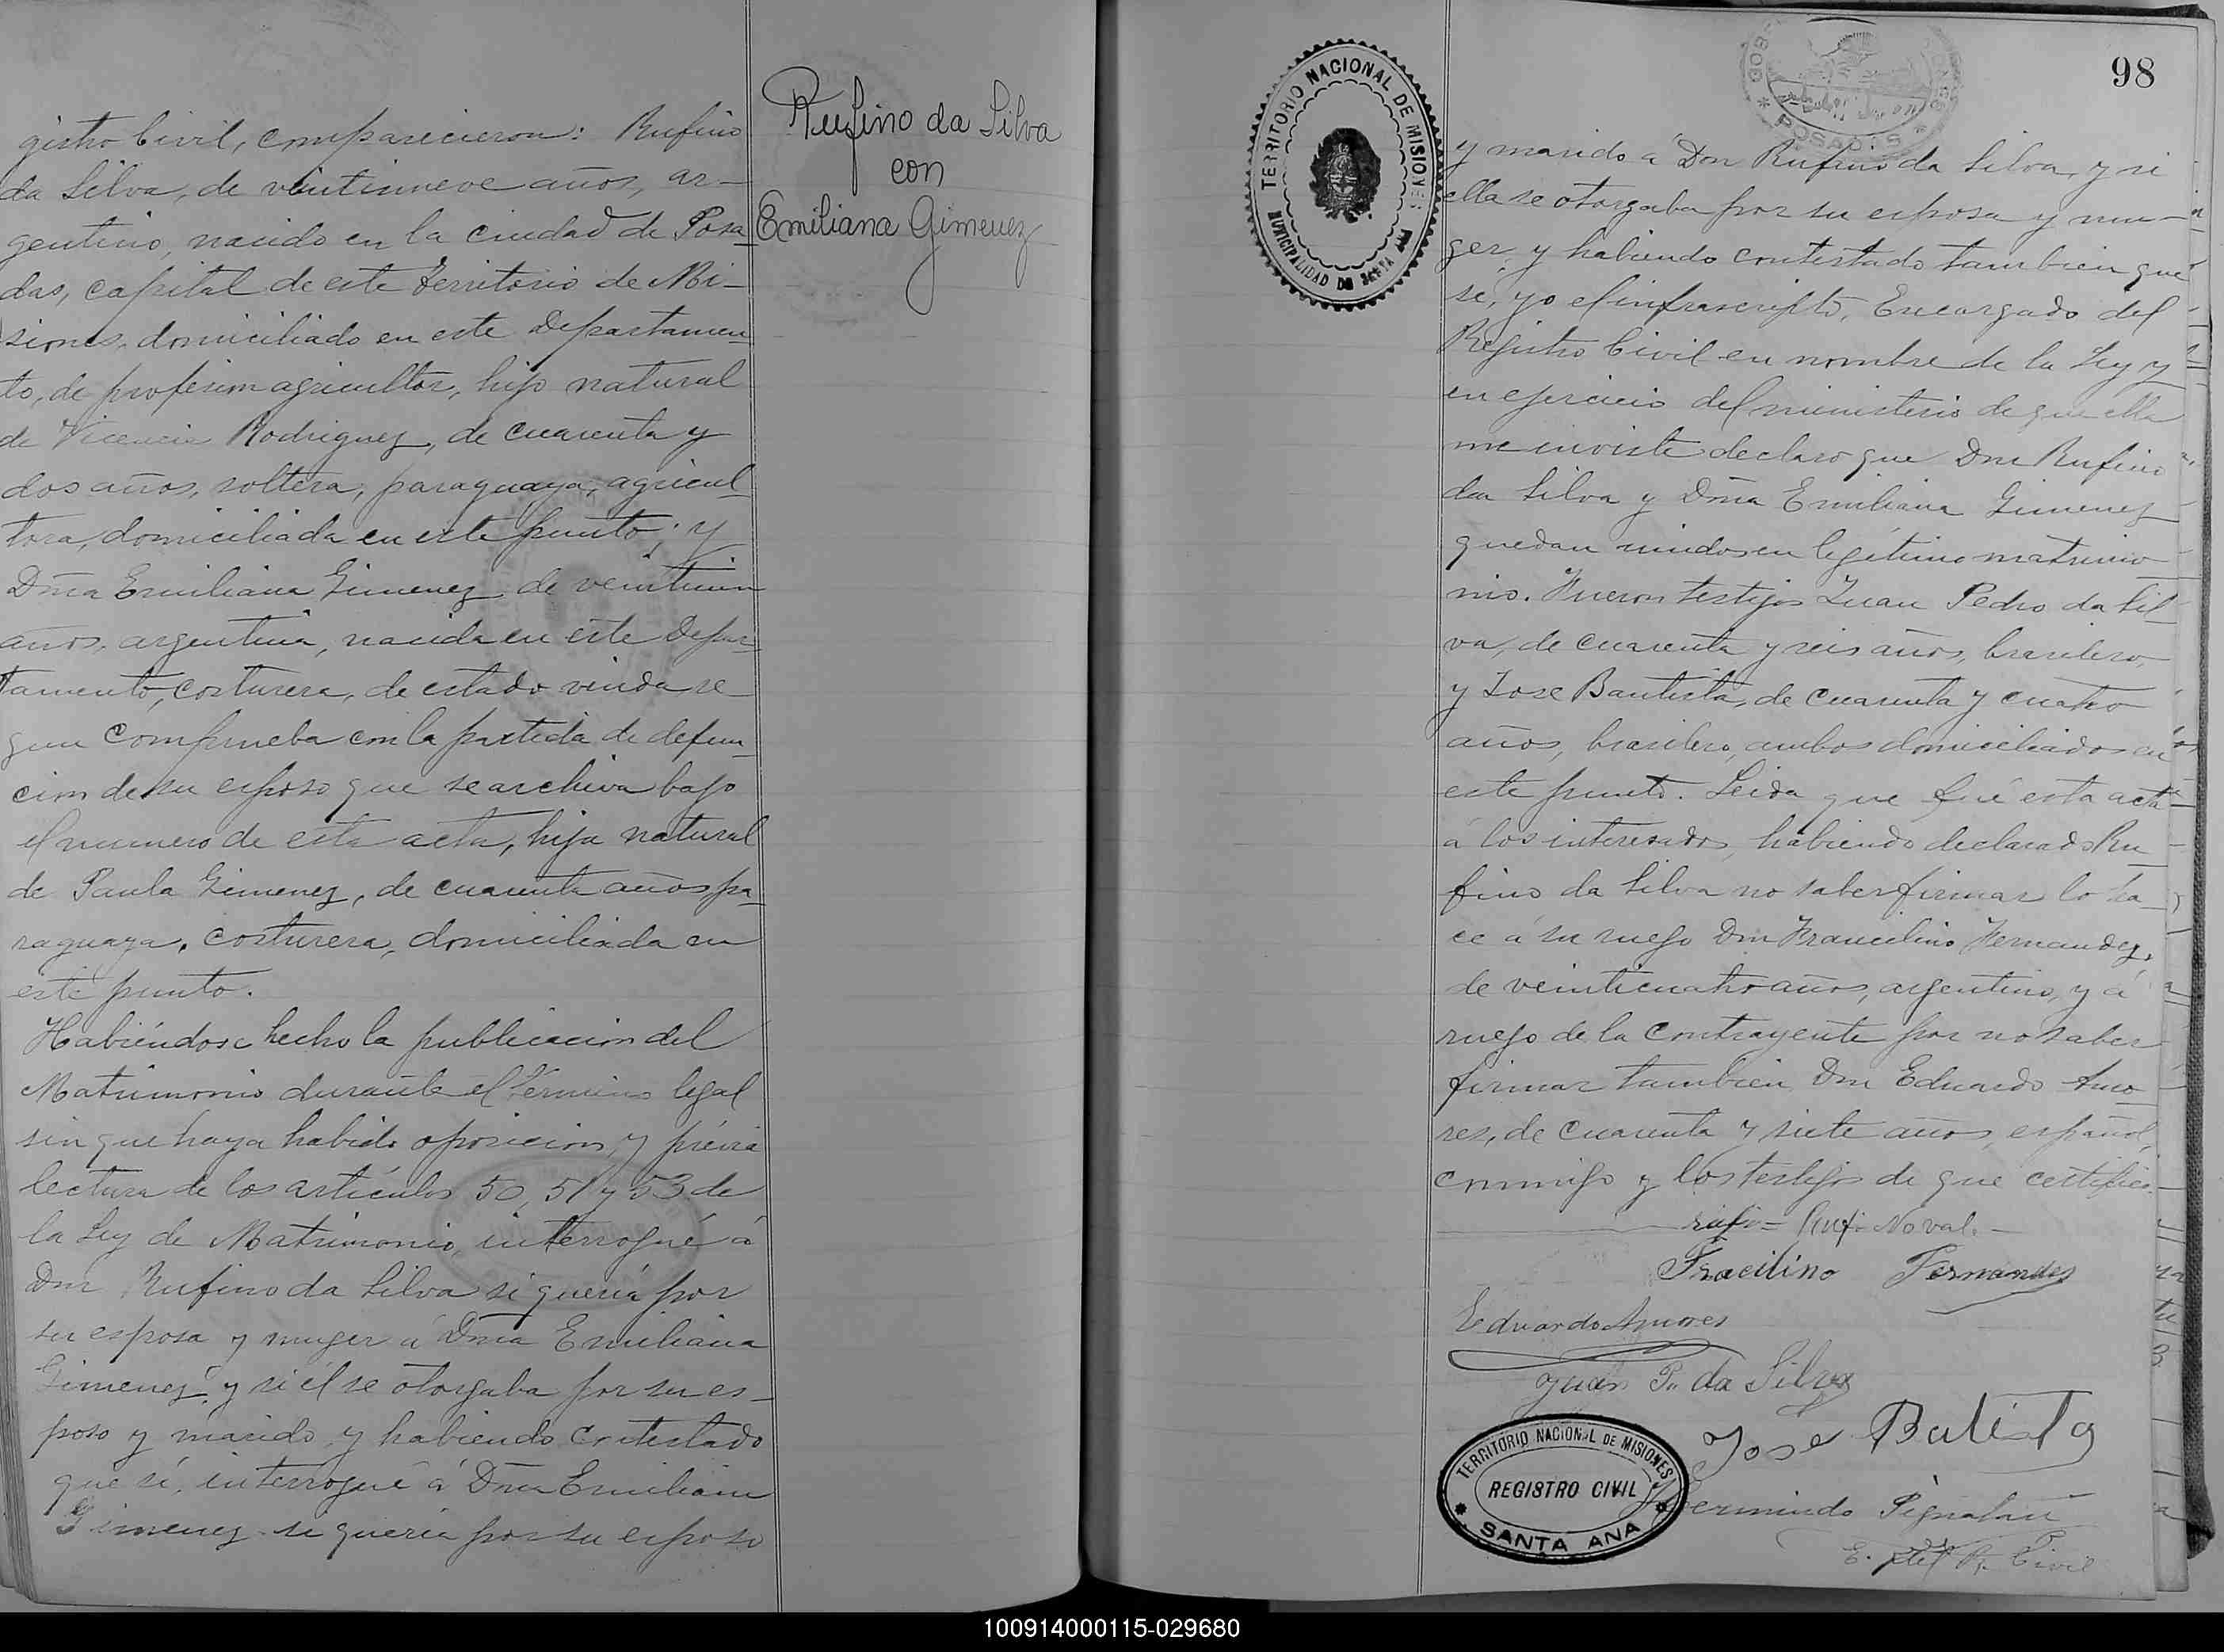 gistro Civil, comparecieron: Rufino
da Silva, de veintinueve años, ar-
gentino, nacido en la ciudad de Posa-
das, capital de este Territorio de Mi-
siones, domiciliado en este Departamen-
to, de profesion agricultor, hijo natural
de Vicencia Rodriguez, de cuarenta y
dos años, soltera, paraguaya, agricul-
tora, domiciliada en este punto; y
Dña Emiliana Gimenez de veintiun
años, argentina, nacida en este Depar-
tamento, costurera, de estado viuda se-
gun comprueba con la partida de defun-
cion de su esposo que se archiva bajo
el numero de esta acta, hija natural
de Paula Gimenez, de cuarenta años pa-
raguaya, costurera, domiciliada en
este punto.
Habiéndose hecho la publicacion del
Matrimonio durante el término legal
sin que haya habido oposicion, y prévia
lectura de los artículos 50, 51 y 53 de
la Ley de Matrimonio, interrogué á
Don Rufino da Silva si queria por
su esposa y muger á Dña Emiliana
Gimenez, y si él se otorgaba por su es-
poso y marido, y habiendo contestado
que sí, interrogué á Dña Emiliana
Gimenez si queria por su esposo
Rufino da Silva
con
Emiliana Gimenez
TERRITORIO NACIONAL DE MISIONES
MUNICIPALIDAD DE SANTA ANA
POSADAS
98
y marido á Don Rufino da Silva, y si
ella se otorgaba por su esposa y mu-
ger, y habiendo contestado tambien que
sí, yo el infrascripto, Encargado del
Registro Civil en nombre de la Ley y
en ejercicio del ministerio de que ella
me inviste declaro que Don Rufino
da Silva y Dña Emiliana Gimenez
quedan unidos en legítimo matrimo-
nio. Fueron testigos Juan Pedro da Sil-
va, de cuarenta y seis años, brasilero,
y Jose Bautista, de cuarenta y cuatro
años, brasilero, ambos domiciliados en
este punto. Leida que fué esta acta
á los interesados, habiendo declarado Ru-
fino da Silva no saber firmar lo ha-
ce á su ruego Don Francilino Fernandez,
de veinticuatro años, argentino, y á
ruego de la contrayente por no saber
firmar tambien Don Eduardo Amo-
res, de cuarenta y siete años, español,
conmigo y los testigos de que certifico.
Rufi - No vale -
Fracilino Fernandes
Eduardo Amores
Juan P. da Silva
Jose Batista
TERRITORIO NACIONAL DE MISIONES
REGISTRO CIVIL
SANTA ANA
E. del R. Civil
100914000115-029680